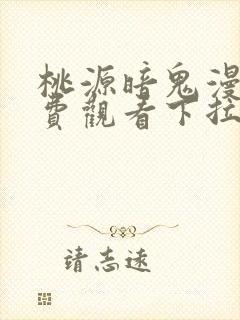 桃源暗鬼漫
費觀看下拉
靖志远